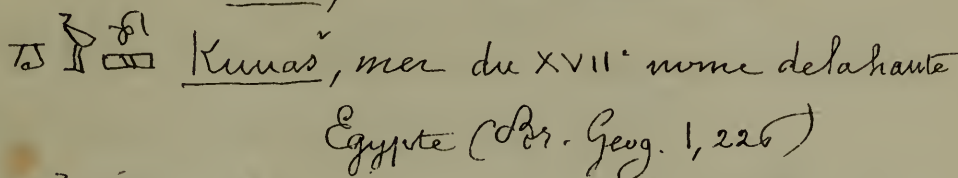 Kunaš, mer du XVII° nome de la haute
Egypte (Br. Geog. 1, 226)